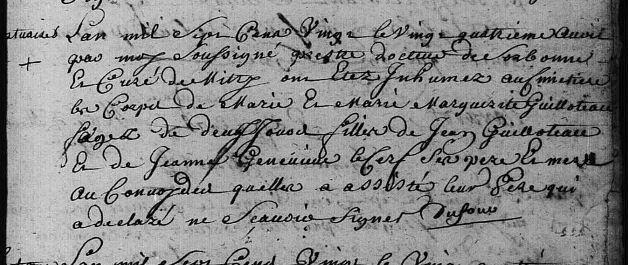 Lan mil Sept Cens Vingt le Vingt quatrieme avril
par moy Soussigné prestre docteur de Sorbonne
Et Curé de Mitry ont Etez Inhumez au Simetiere
les Corps de Marie Et Marie Marguerite Guilloteau
agez de deux filles de Jean Guilloteau
Et de Jeanne Genevieve le Cerf Ses pere Et mere
Au Convoy des quelles a assisté leur Pere qui
a declaré ne Scavoir Signer Dufour
Lan mil Sept Cens Vingt le Vingt